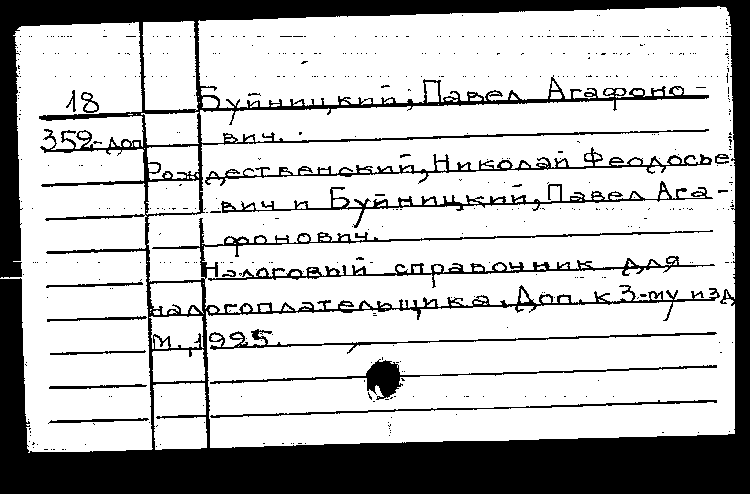 18 Буйницкий, Павел Агафоно-
352-доп вич.
Рождественский, Николай Феодосье
вич и Буйницкий, Павел Ага-
фонович.
Налоговый справочник для
налогоплательщика. Доп. к 3-му изд
М., 1925.